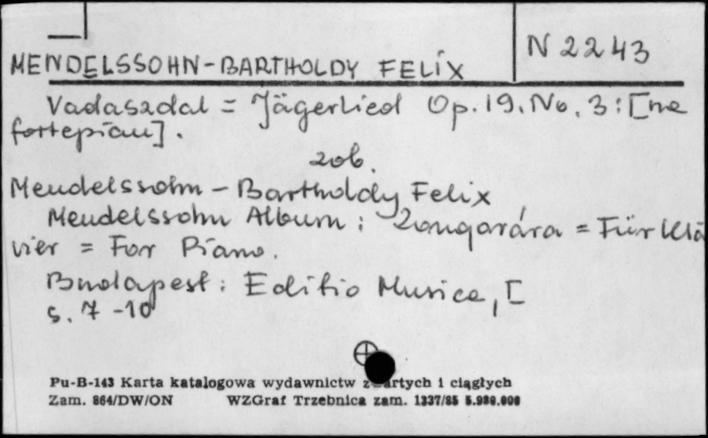 N 2243
MENDELSSOHN-BARTHOLDY FELIX
Vadászdal = Jägerlied Op. 19. No. 3 : [na
fortepian] .
zob.
Mendelssohn - Bartholdy Felix
Mendelssohn Album : Zongorára = Für Kla
vier = For Piano.
Budapest : Editio Musica, [
s. 7 -10
Pu-B-143 Karta katalogowa wydawnictw zwartych i ciągłych
Zam. 864/DW/ON WZGraf Trzebnica zam. 1337/85 5.980.000